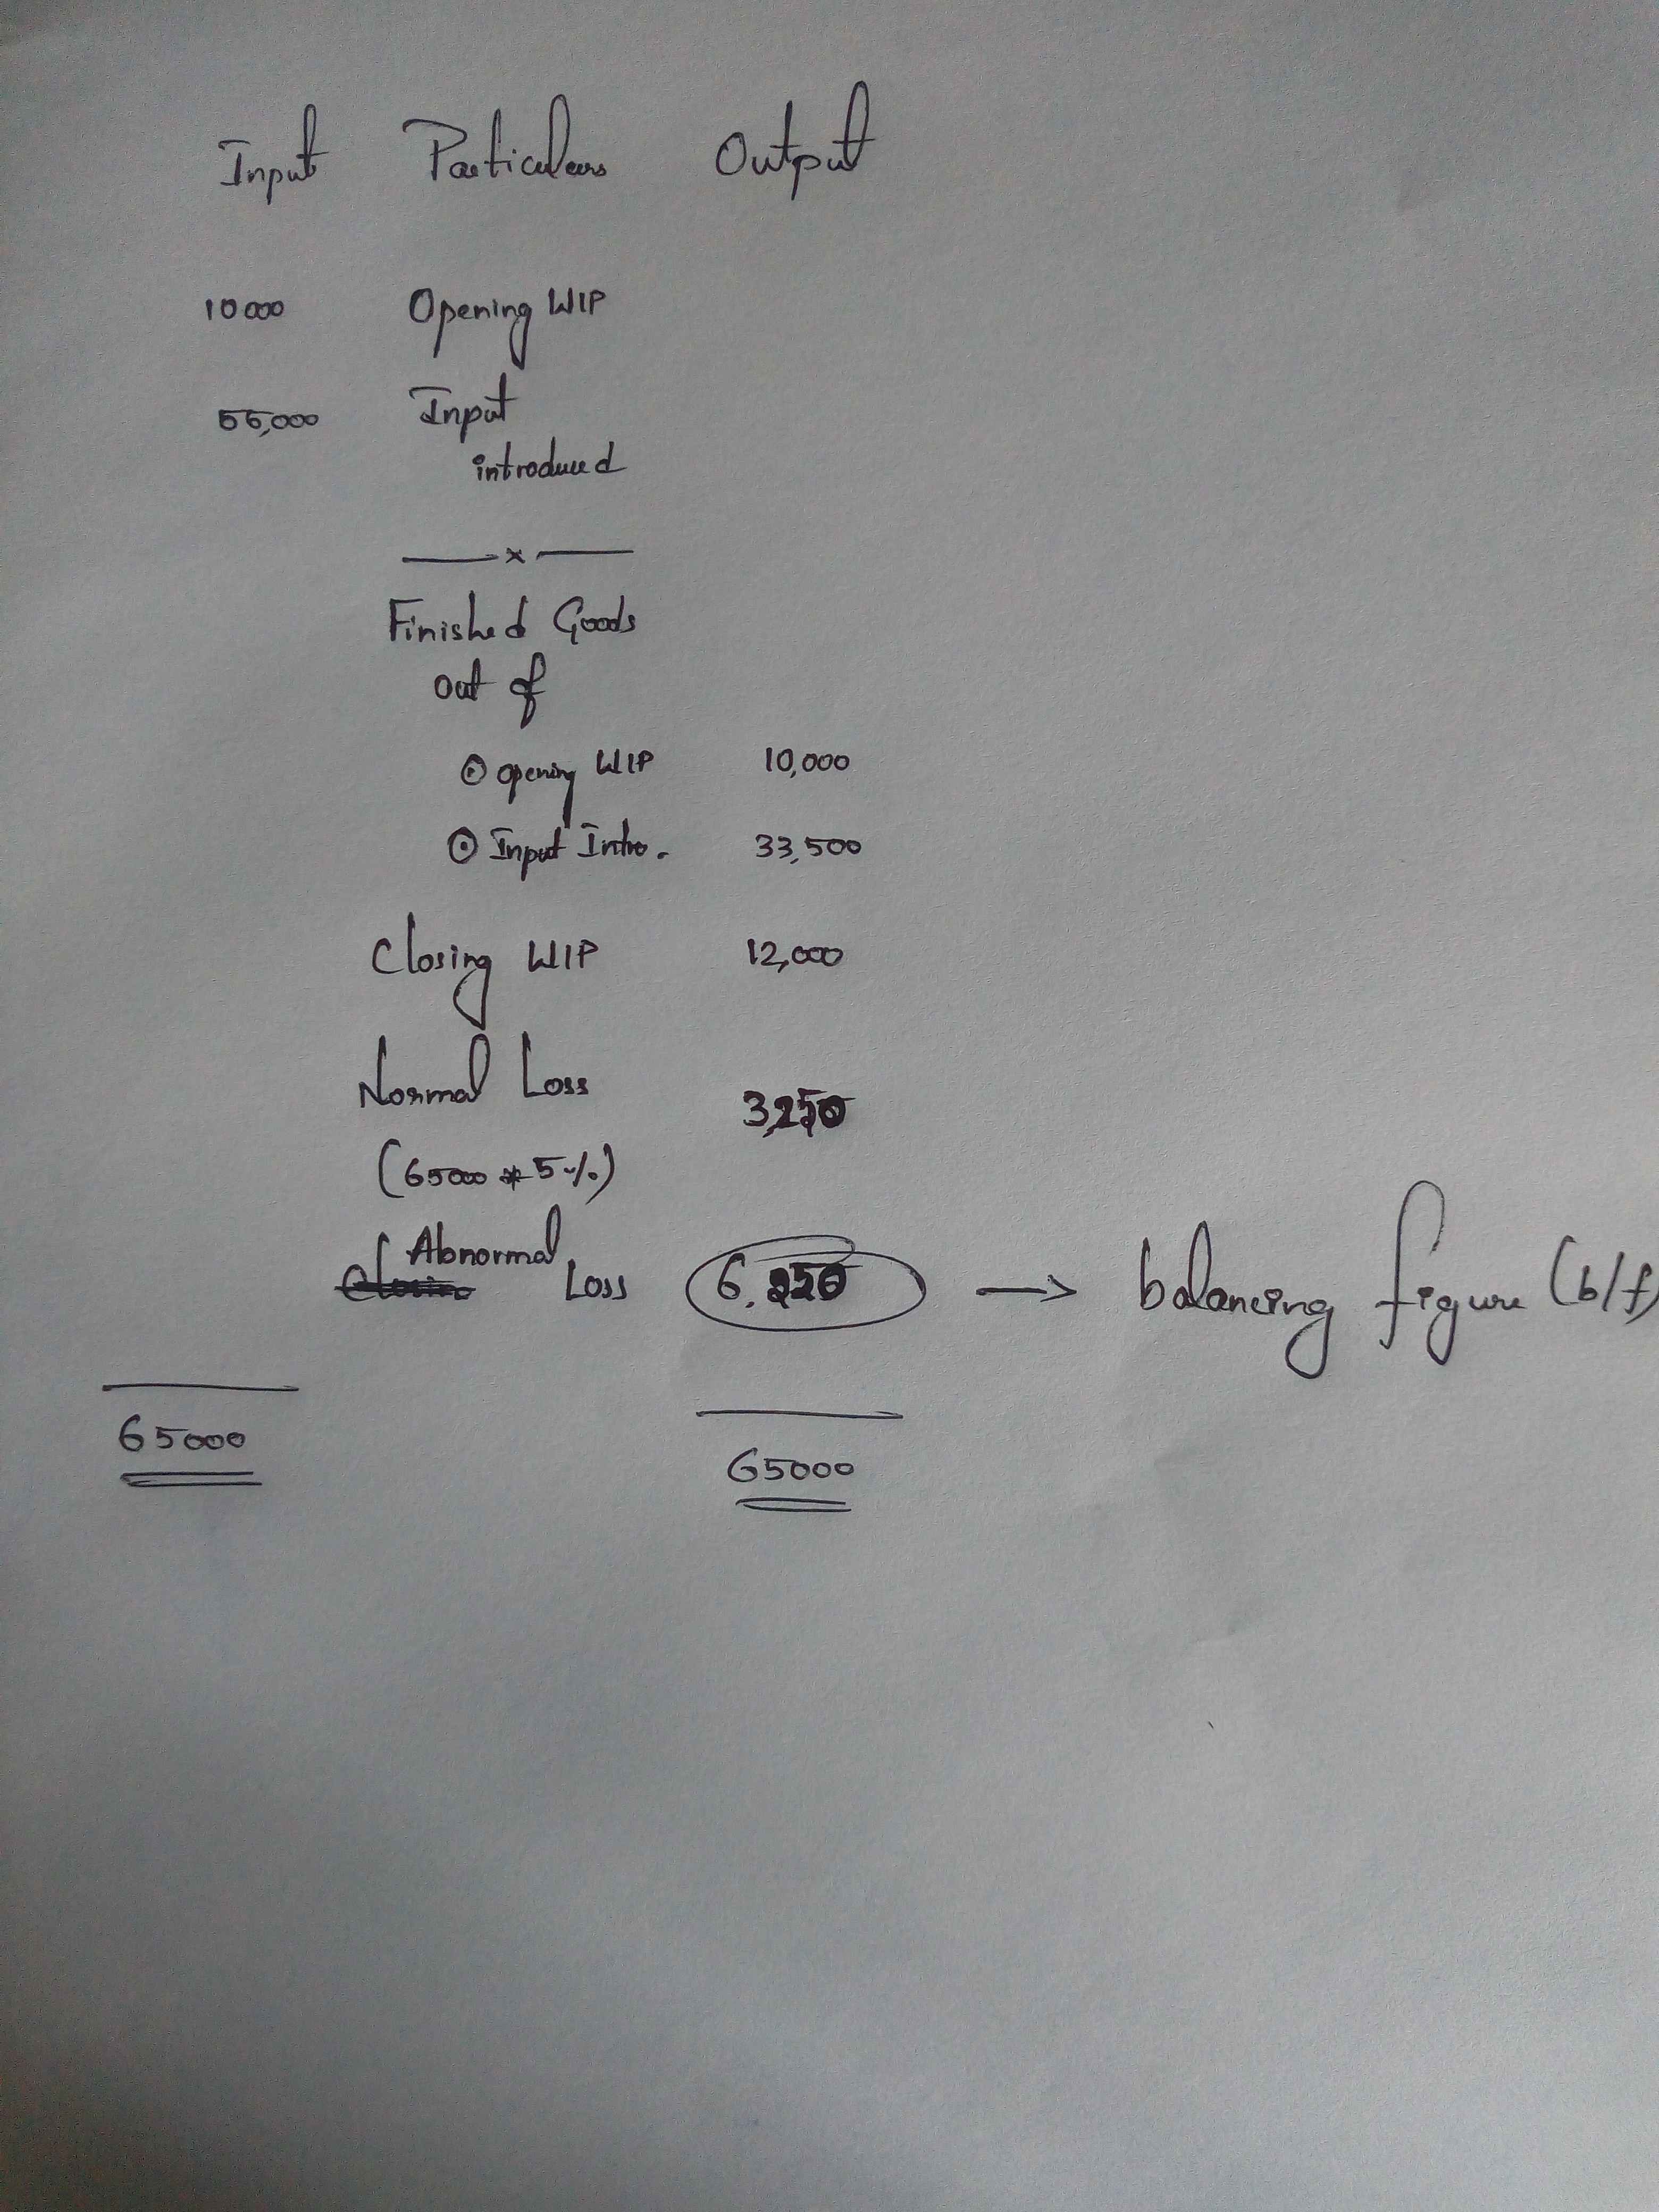 Input Particulars Output
10000 Opening WIP
55,000 Input
introduced
x
Finished Goods
out of
opening WIP 10,000
Input Intro. 33,500
Closing WIP 12,000
Normal Loss 3,250
(65000 * 5%)
Abnormal
Loss 6,250 → balancing figure (b/f)
65000
65000